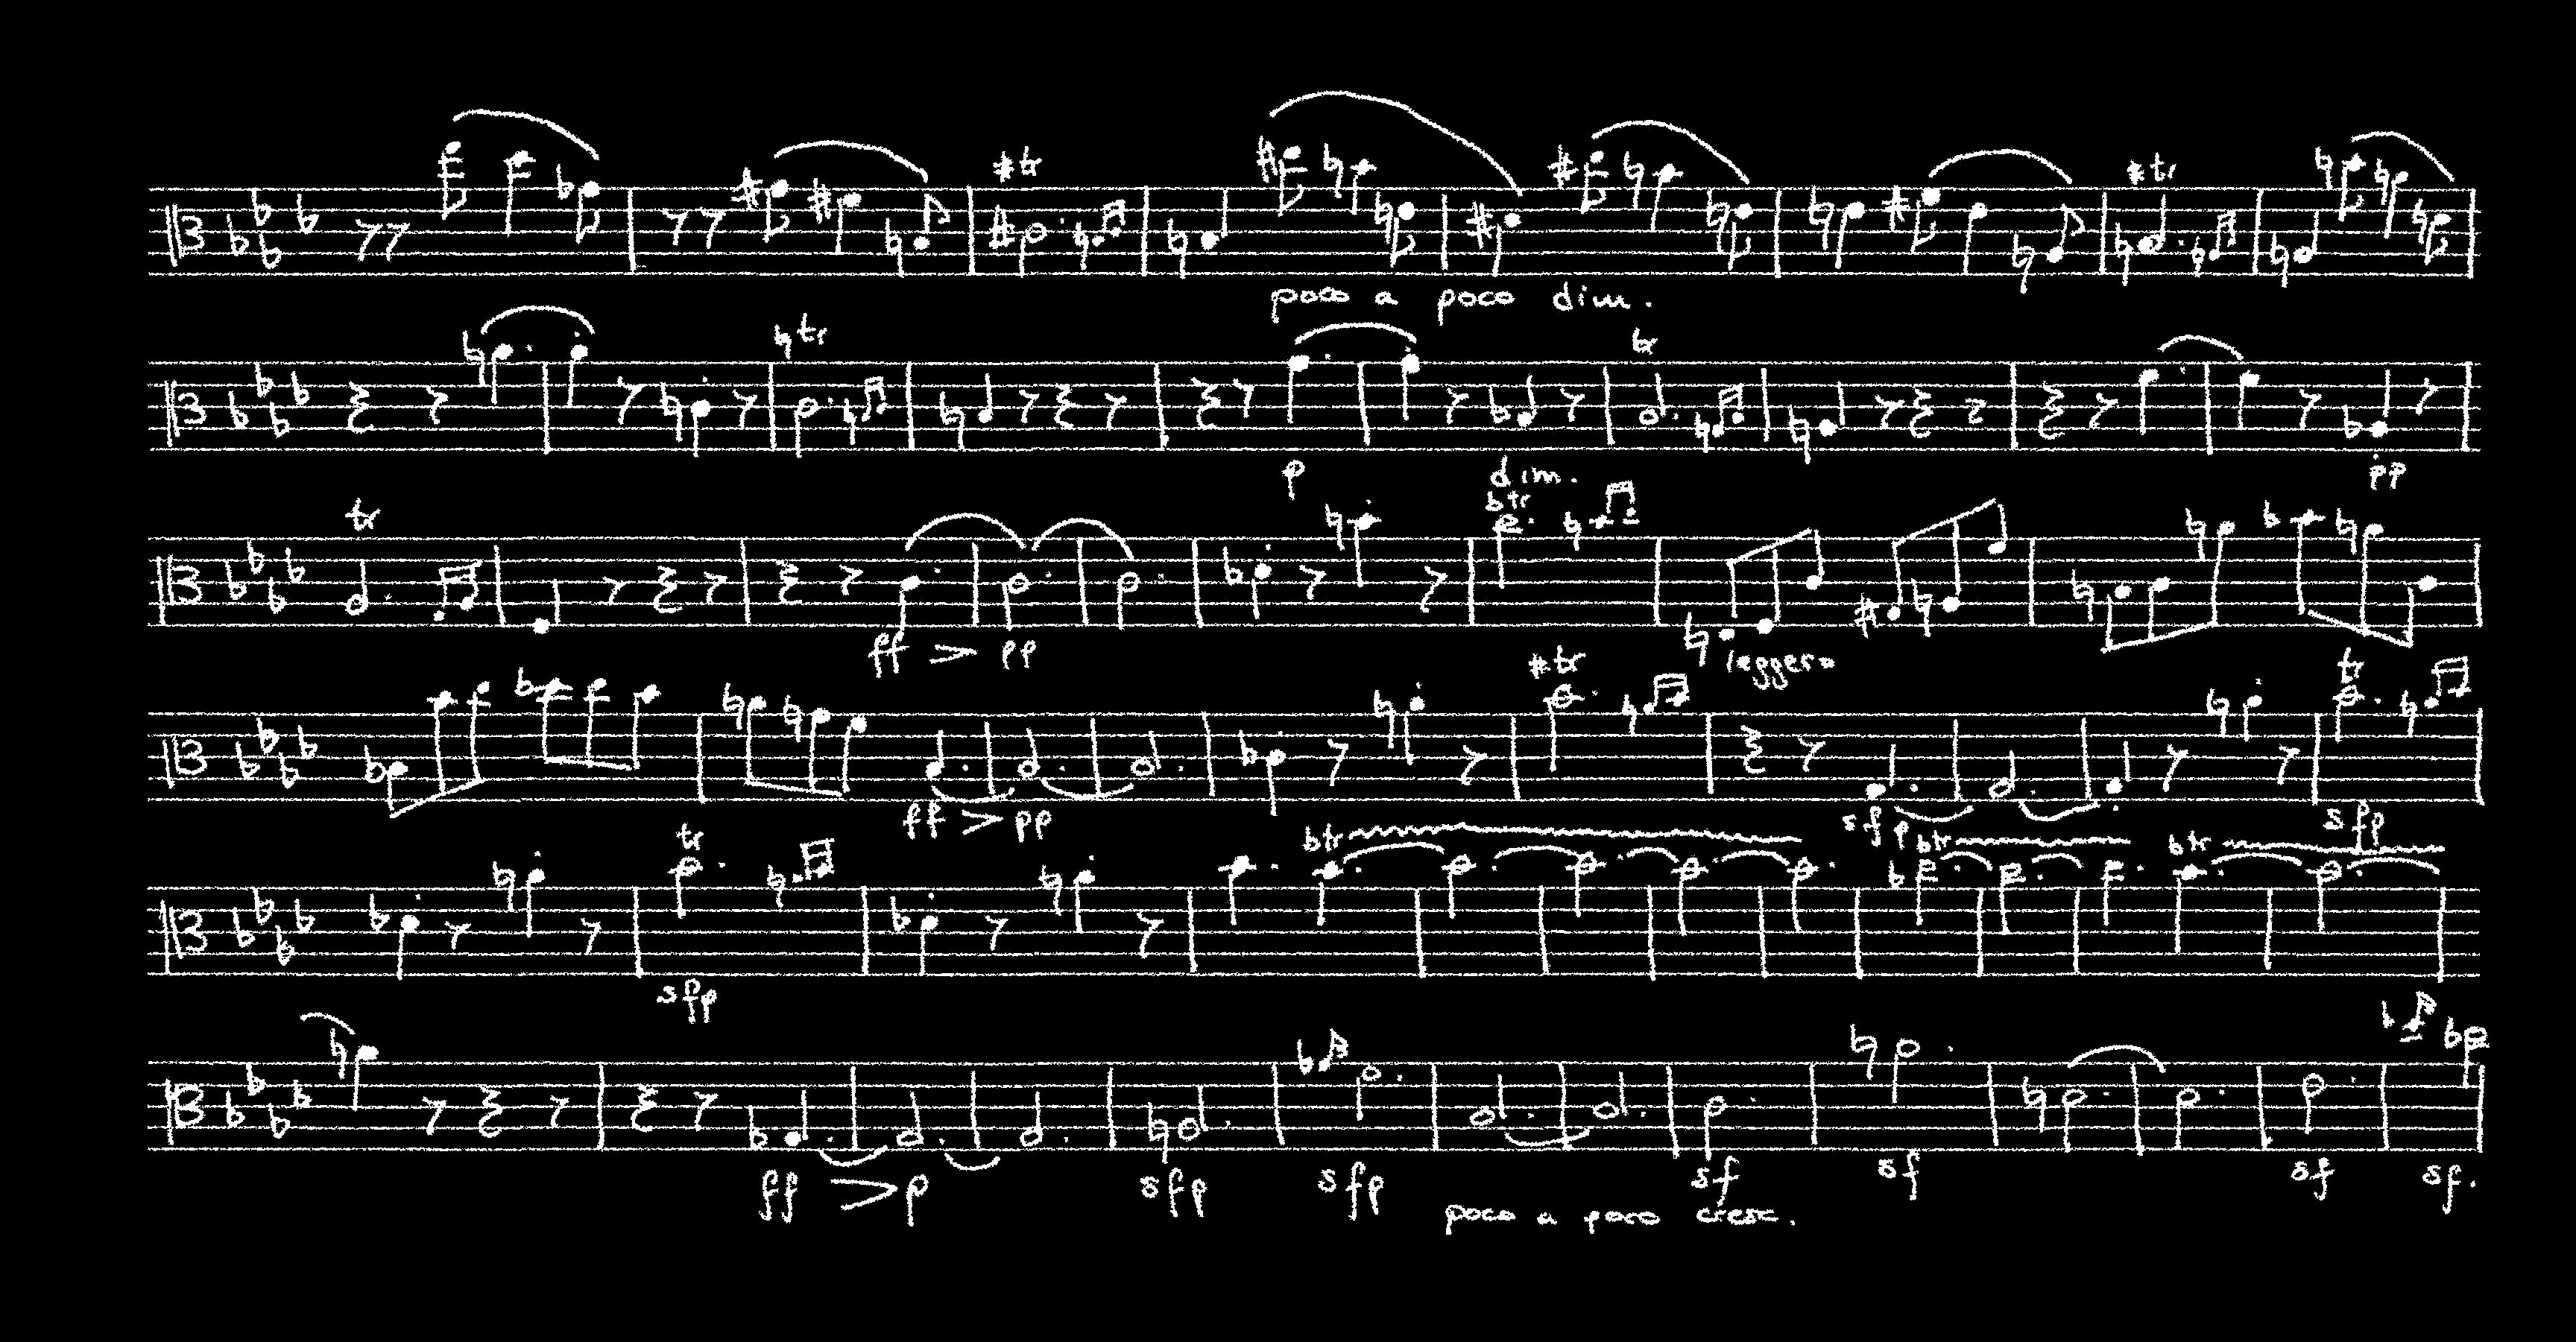 tr
tr
poco a poco dim.
tr
tr
p
dim.
pp
tr
tr
ff > pp
leggero
tr
tr
ff > pp
sfp
sfp
tr
tr
tr
tr
sfp
ff > p
sfp
sfp
sf
sf
sf
sf.
poco a poco cresc.